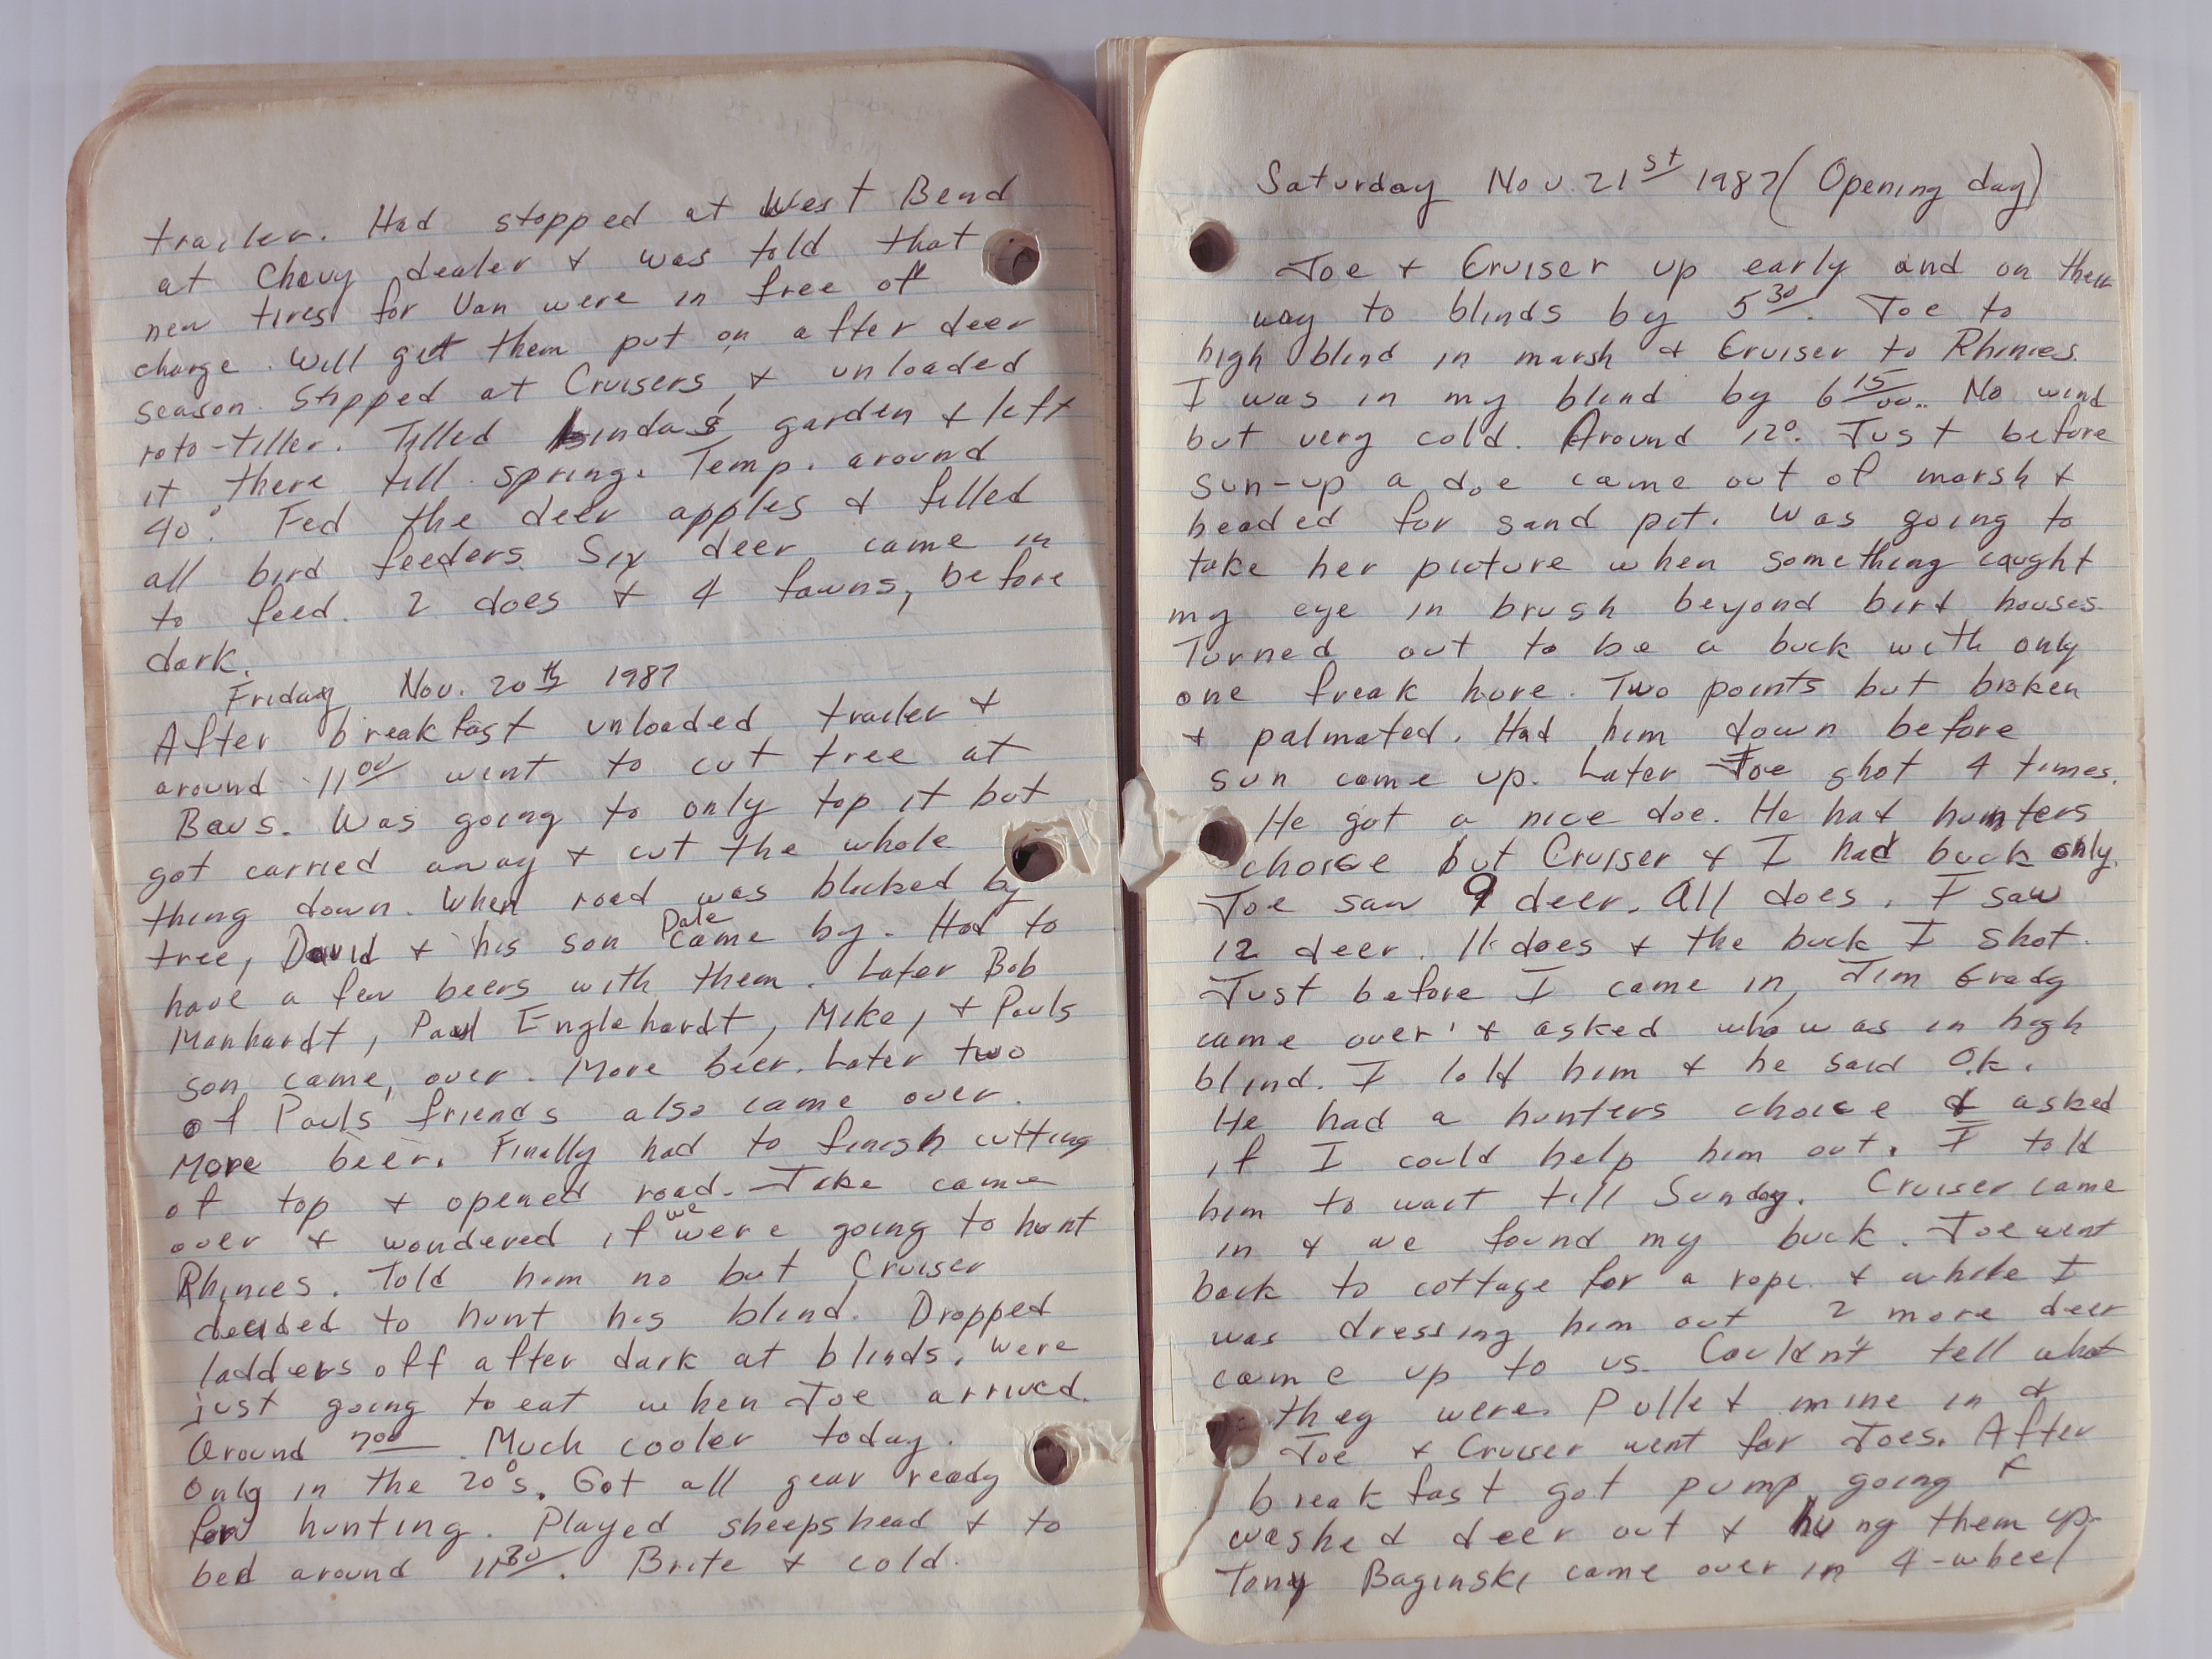 trailer. Had stopped at West Bend
at Chevy dealer & was told that
new tires for Van were in free of
charge. Will get them put on after deer
season. Stopped at Cruisers, & unloaded
roto-tiller. Tilled Lindas garden & left
it there till spring. Temp. around
40°. Fed the deer apples & filled
all bird feeders. Six deer came in
to feed. 2 does & 4 fawns, before
dark.
Friday, Nov. 20th 1987
After breakfast unloaded trailer &
around 11 00 went to cut tree at
Bavs. Was going to only top it but
got carried away & cut the whole
thing down. When road was blocked by
tree, David & his son Dale came by. Had to
have a few beers with them. Later Bob
Manhardt, Paul Englehardt, Mike, & Pauls
son came over. More beer. Later two
of Pauls friends also came over.
More beer. Finally had to finish cutting
of top & opened road. Jake came
over & wondered if we were going to hunt
Rhinies. Told him no but Cruiser
decided to hunt his blind. Dropped
ladders off after dark at blinds. Were
just going to eat when Joe arrived.
Around 7 00. Much cooler today.
Only in the 20°s. Got all gear ready
for hunting. Played sheepshead & to
bed around 11 30. Brite & cold.
Saturday Nov. 21st 1987 (Opening day)
Joe & Cruiser up early and on their
way to blinds by 5 30. Joe to
high blind in marsh & Cruiser to Rhinies.
I was in my blind by 6 15. No wind
but very cold. Around 12°. Just before
sun-up a doe came out of marsh &
headed for sand pit. Was going to
take her picture when something caught
my eye in brush beyond bird houses.
Turned out to be a buck with only
one freak hore. Two points but broken
& palmated. Had him down before
sun come up. Later Joe shot 4 times.
He got a nice doe. He had hunters
choice but Cruiser & I had buck only.
Joe saw 9 deer. All does. I saw
12 deer. 11 does & the buck I shot.
Just before I came in, Jim Grady
came over & asked who was in high
blind. I told him & he said O.k.
He had a hunters choice & asked
if I could help him out. I told
him to wait till Sunday. Cruiser came
in & we found my buck. Joe went
back to cottage for a rope & while I
was dressing him out 2 more deer
came up to us. Couldn't tell what
they were. Pulled mine in &
Joe & Cruiser went for Joes. After
breakfast got pump going &
washed deer out & hung them up.
Tony Baginski came over in 4-wheel